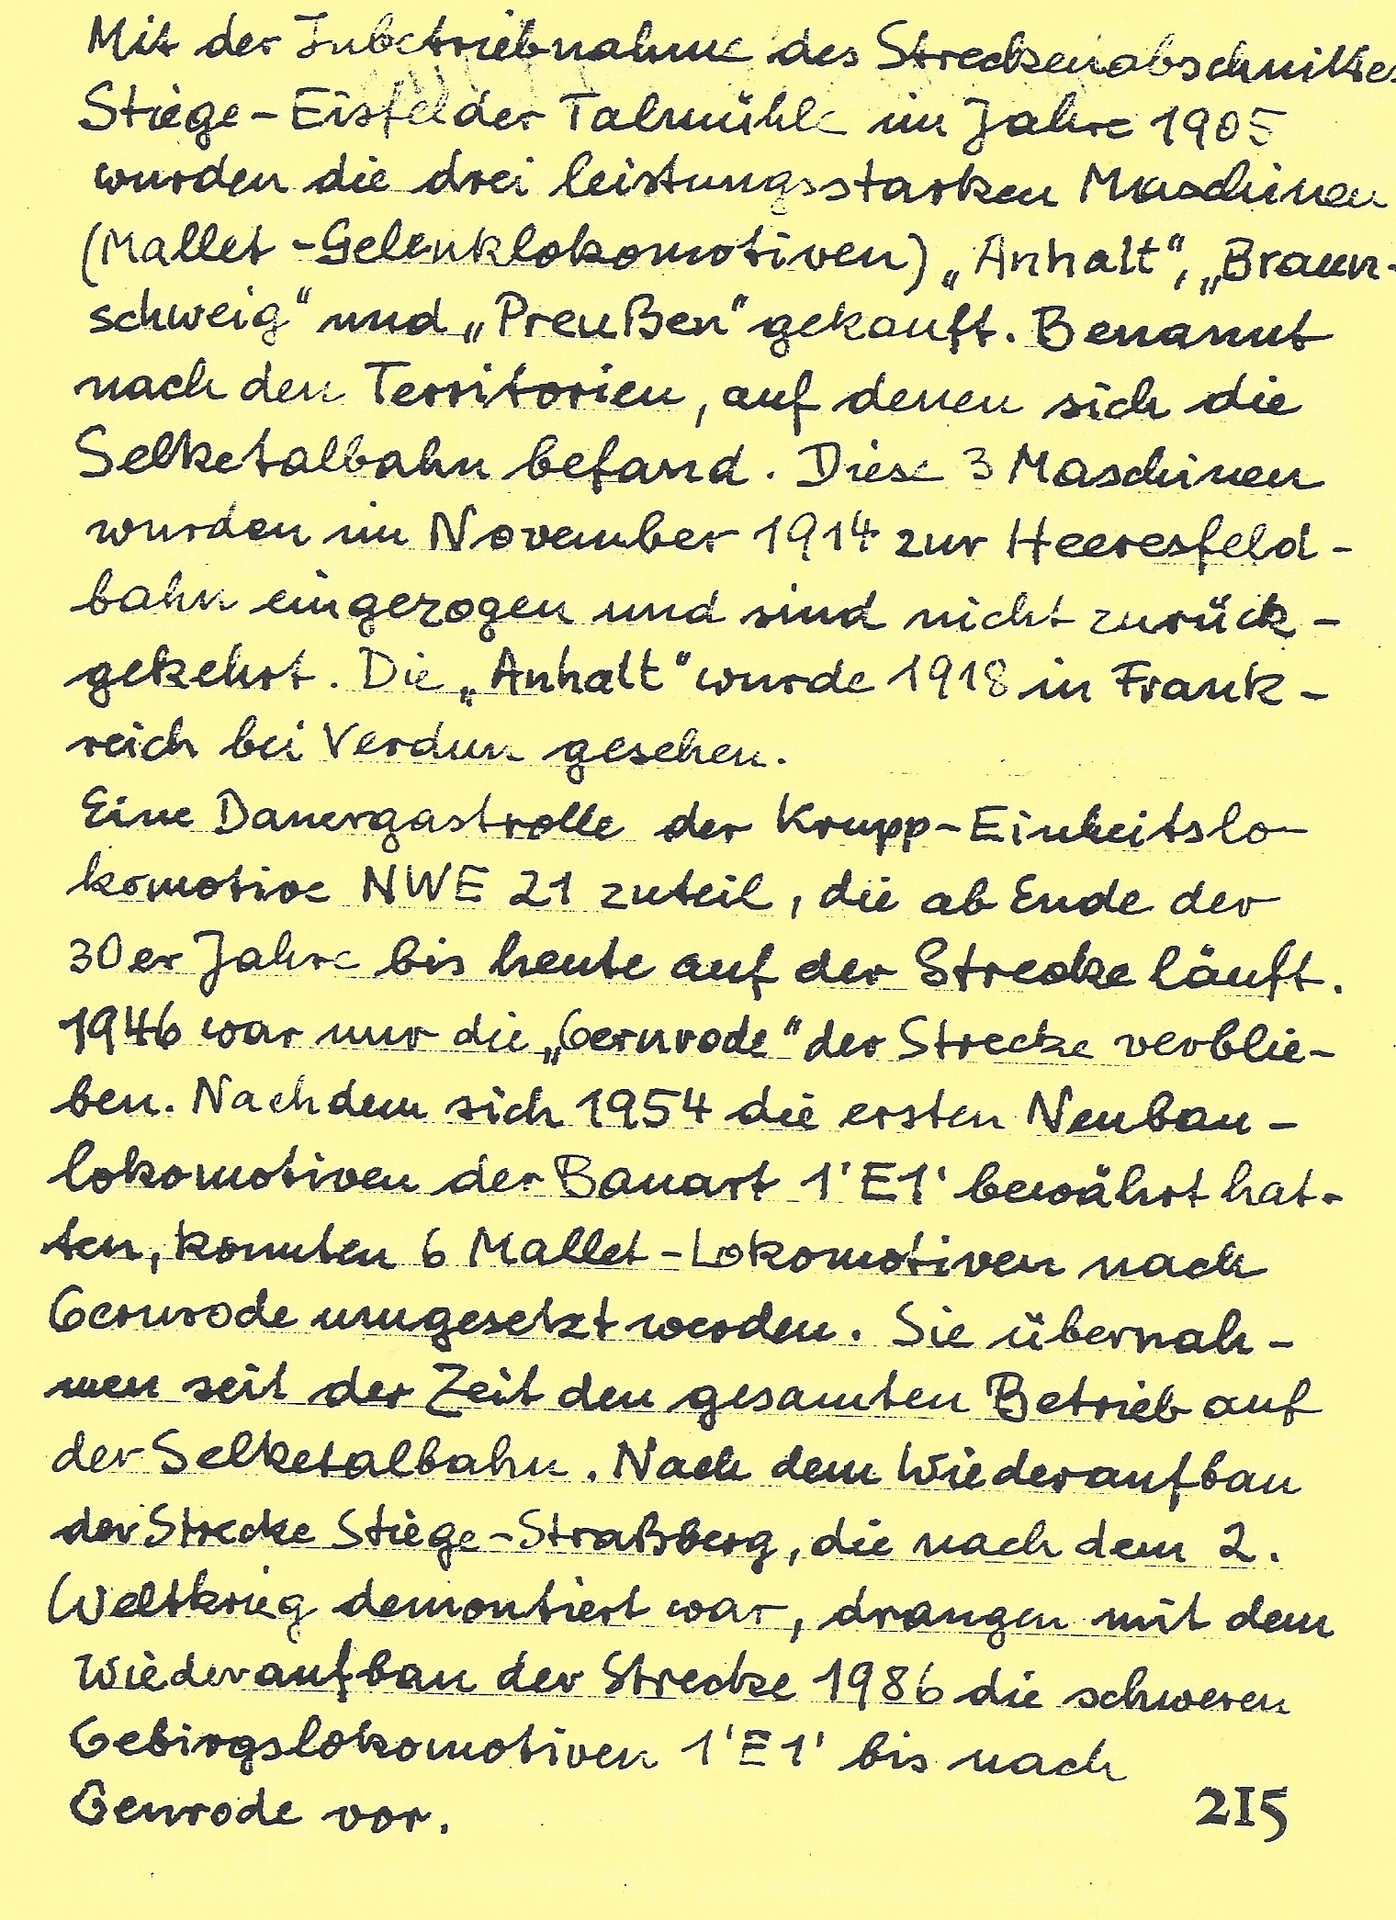 Mit der Inbetriebnahme des Streckenabschnittes
Stiege-Eisfelder Talmühle im Jahre 1905
wurden die drei leistungsstarken Maschinen
(Mallet-Gelenklokomotiven) „Anhalt“, „Braun-
schweig“ und „Preußen“ gekauft. Benannt
nach den Territorien, auf denen sich die
Selketalbahn befand. Diese 3 Maschinen
wurden im November 1914 zur Heeresfeld-
bahn eingezogen und sind nicht zurück-
gekehrt. Die „Anhalt“ wurde 1918 in Frank-
reich bei Verdun gesehen.
Eine Dauergastrolle der Krupp-Einheitslo-
komotive NWE 21 zuteil, die ab Ende der
30er Jahre bis heute auf der Strecke läuft.
1946 war nur die „Gernrode“ der Strecke verblie-
ben. Nachdem sich 1954 die ersten Neubau-
lokomotiven der Bauart 1'E1' bewährt hat-
ten, konnten 6 Mallet-Lokomotiven nach
Gernrode umgesetzt werden. Sie übernah-
men seit der Zeit den gesamten Betrieb auf
der Selketalbahn. Nach dem Wiederaufbau
der Strecke Stiege-Straßberg, die nach dem 2.
Weltkrieg demontiert war, drangen mit dem
Wiederaufbau der Strecke 1986 die schweren
Gebirgslokomotiven 1'E1' bis nach
Genrode vor.
215